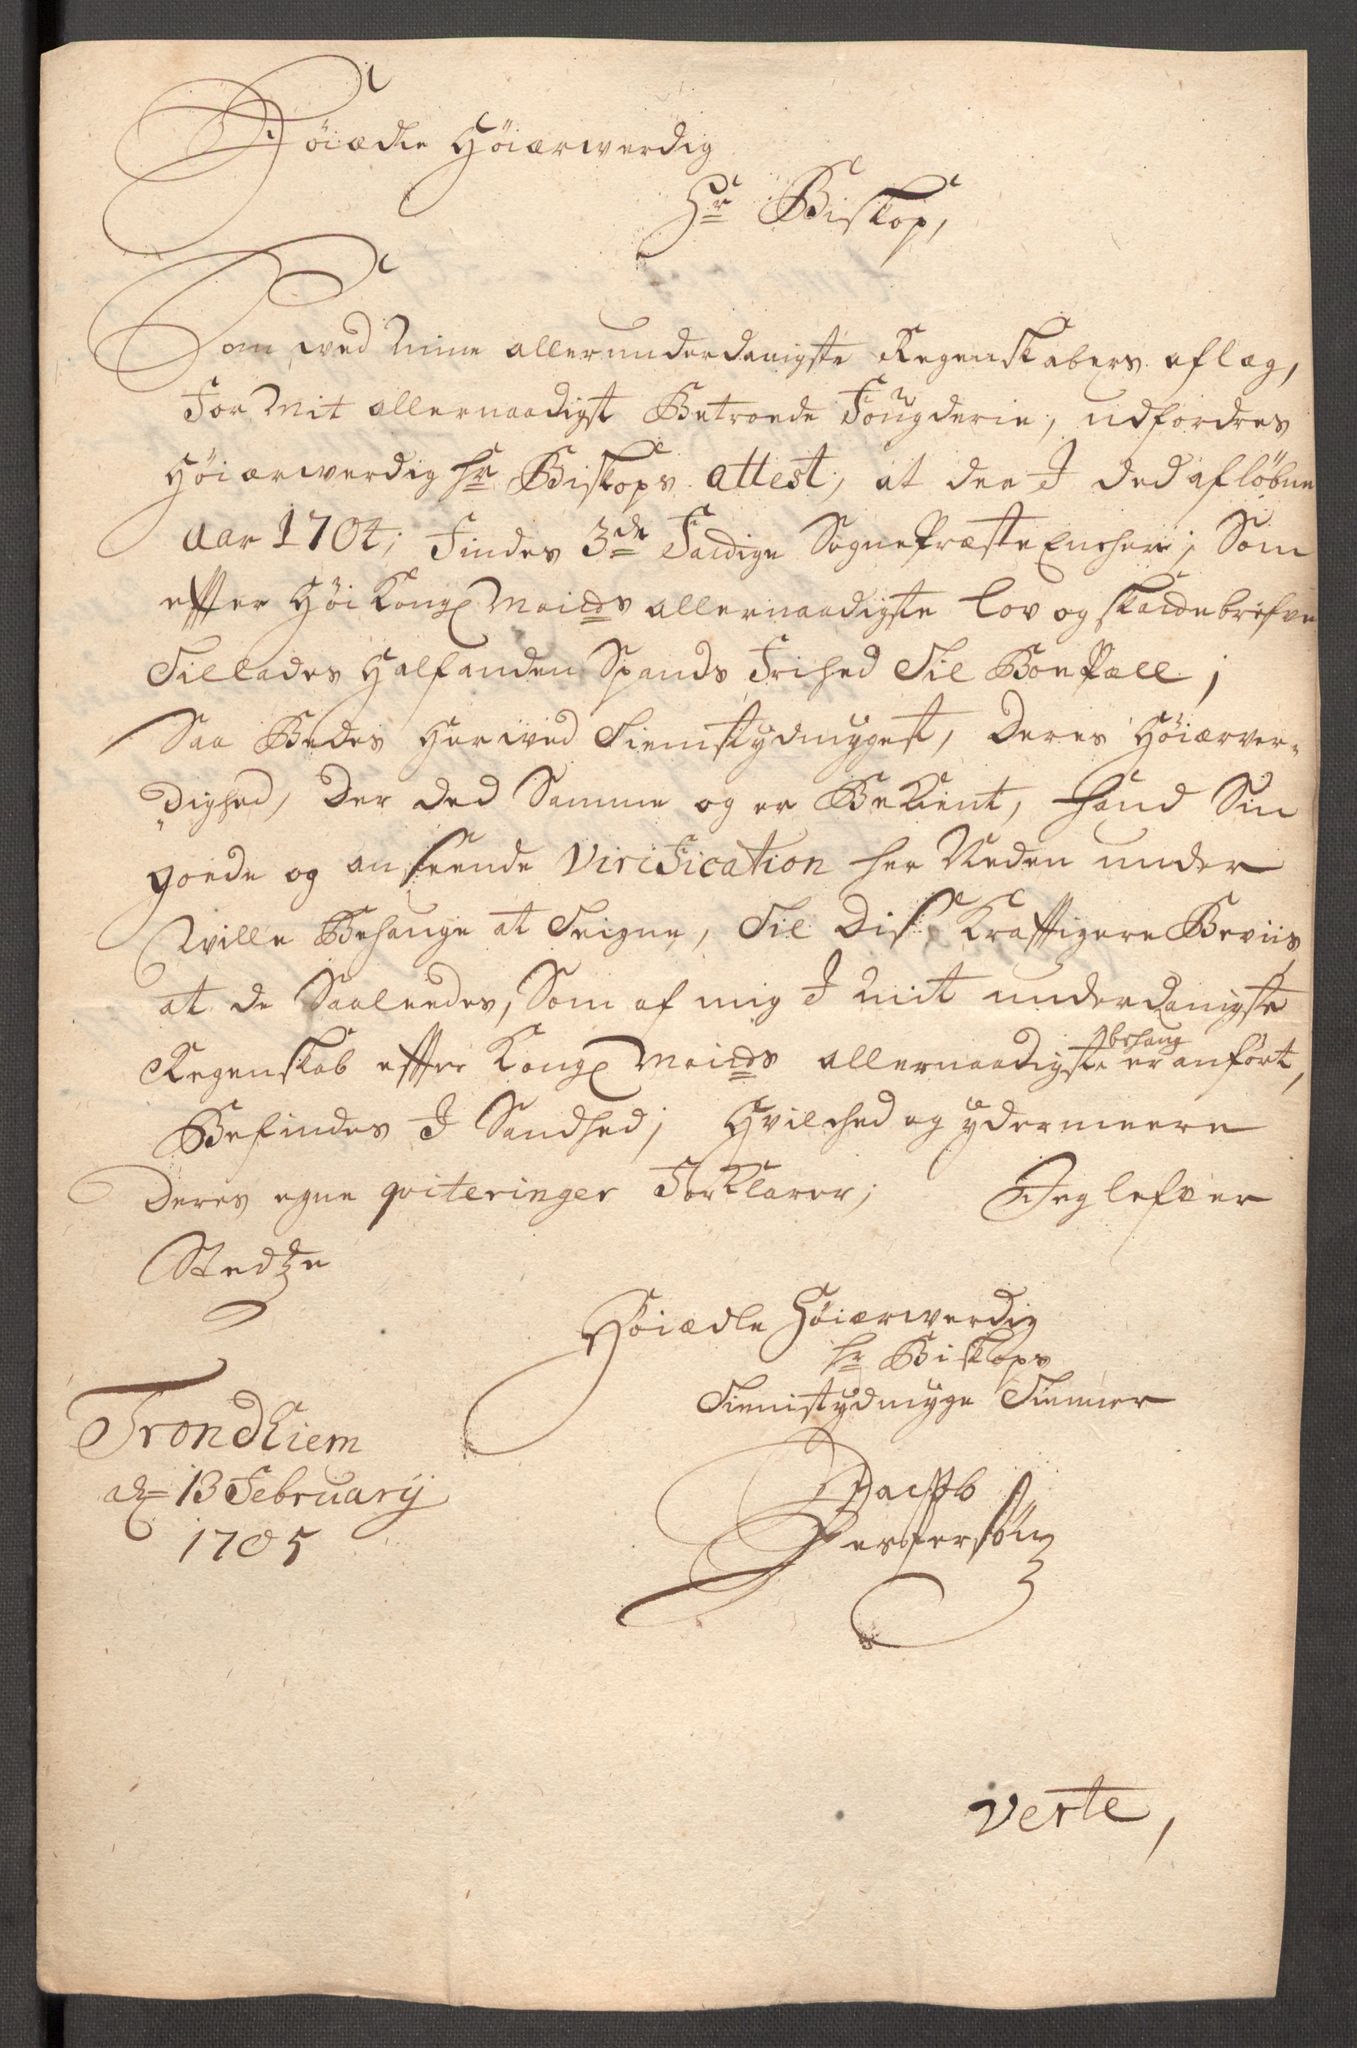 Höiædle Höiærwerdig
Hr Biskop,
Som ved mine allerunderdanigste Regenskabers aflæg,
For Mit allernaadigst Betroede Fougderie, udfordres
Höiærwerdig hr Biskops attest, at der I ded afløbne
Aar 1704; Findes 3de Fattige SognePræste Encher; Som
effter Höi Kongl Maides allernaadigste lov og skatebrefve
Tillades Halfanden Spands Frihed Til BoePæll;
Saa Bedes Herved Tienstydmygest, Deres Höiærver-
dighed, Der ded Samme og er Bekient, haand Sin
goede og anseende Virification her Neden under
Wille Behauge at Teigne, Til Diss Kraftigere Beviis,
at de Saaleedes, Som af mig I Mit underdanigste
Regenskab effter Kongl Maides allernaadigste behaug er anført,
Befindes I Sandhed; Hvilched og ydermeere
Deres egne qviteringer ForKlarer; Jeg lefver
Stedtze
Höiædle Höiærwerdig
hr Biskops
Tienistydmyge Tienner
Trondhiem
d 13 February
1705
Jacob
Jespersön
Verte,